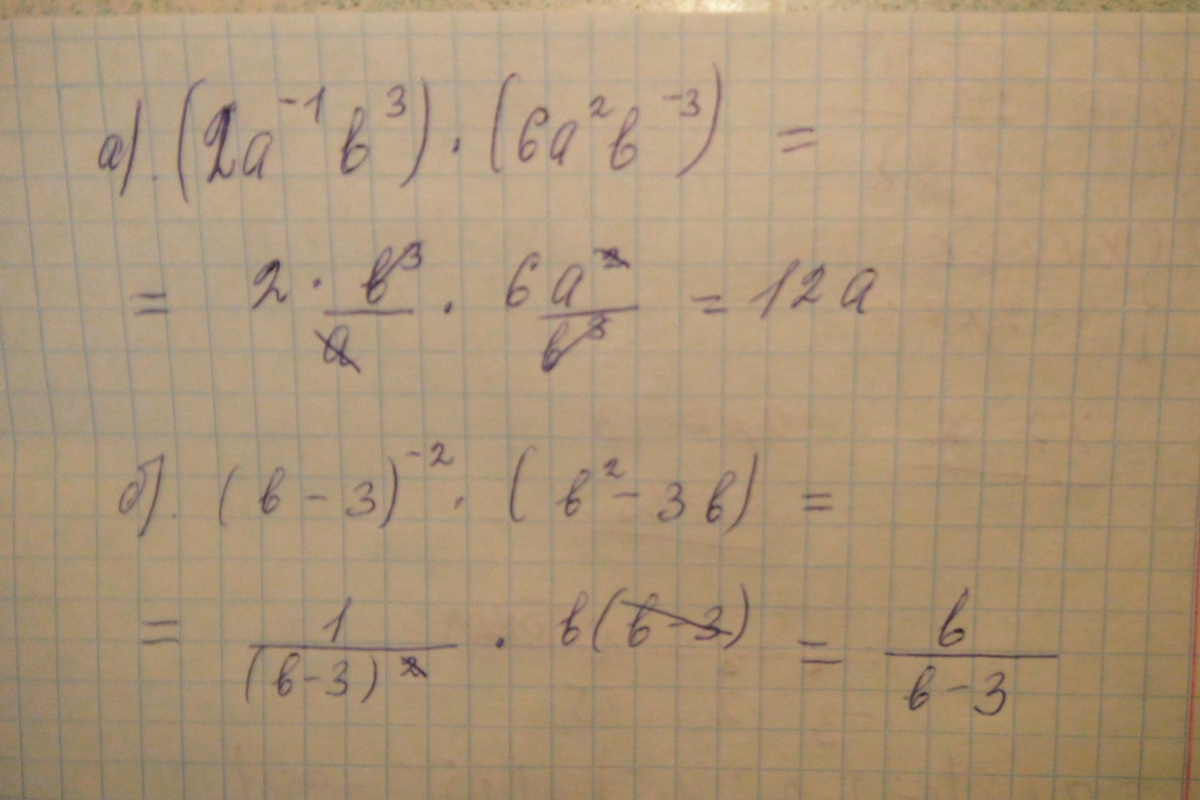 а). (2a⁻¹b³) · (6a²b⁻³) =
= 2 · b³/a · 6a²/b³ = 12a
б). (b - 3)⁻² · (b² - 3b) =
= 1/(b-3)² · b(b-3) = b/(b-3)